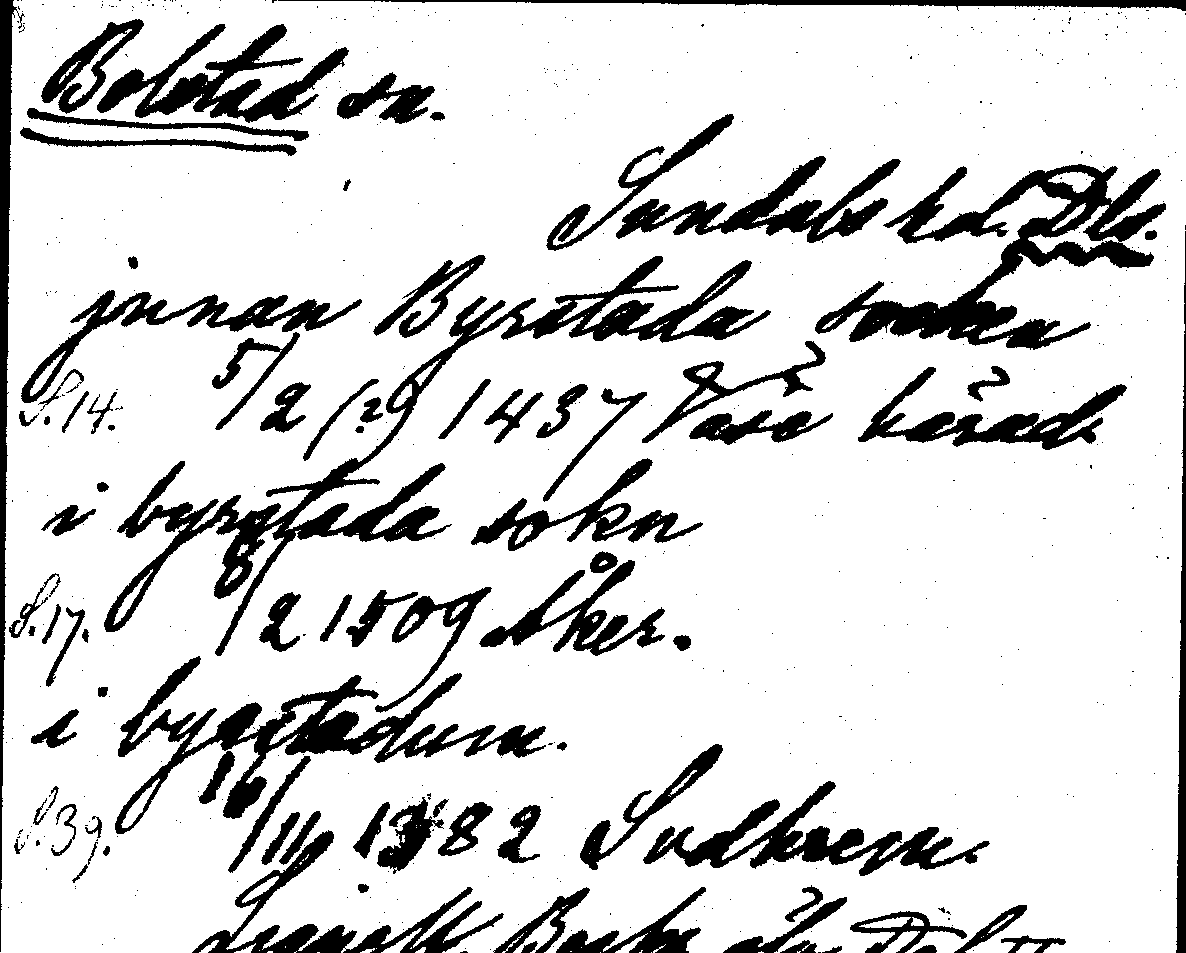 Bolstad sn.
Sundals hd. Dls.
jnnan Byrstada socken
S.14. 5/2 (?) 1437 Våse härad.
i byrstada sokn
S.17. 8/2 1509 Åker.
i byrstadum.
S.39. 16/11 1382 Sudhrem.